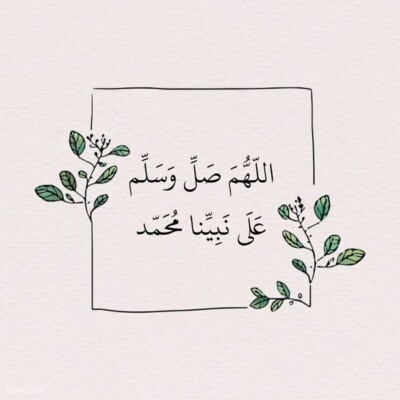 اللّهُمَ صَلِّ وَسَلِّم
عَلَى نَبِيِّنا مُحَمّد